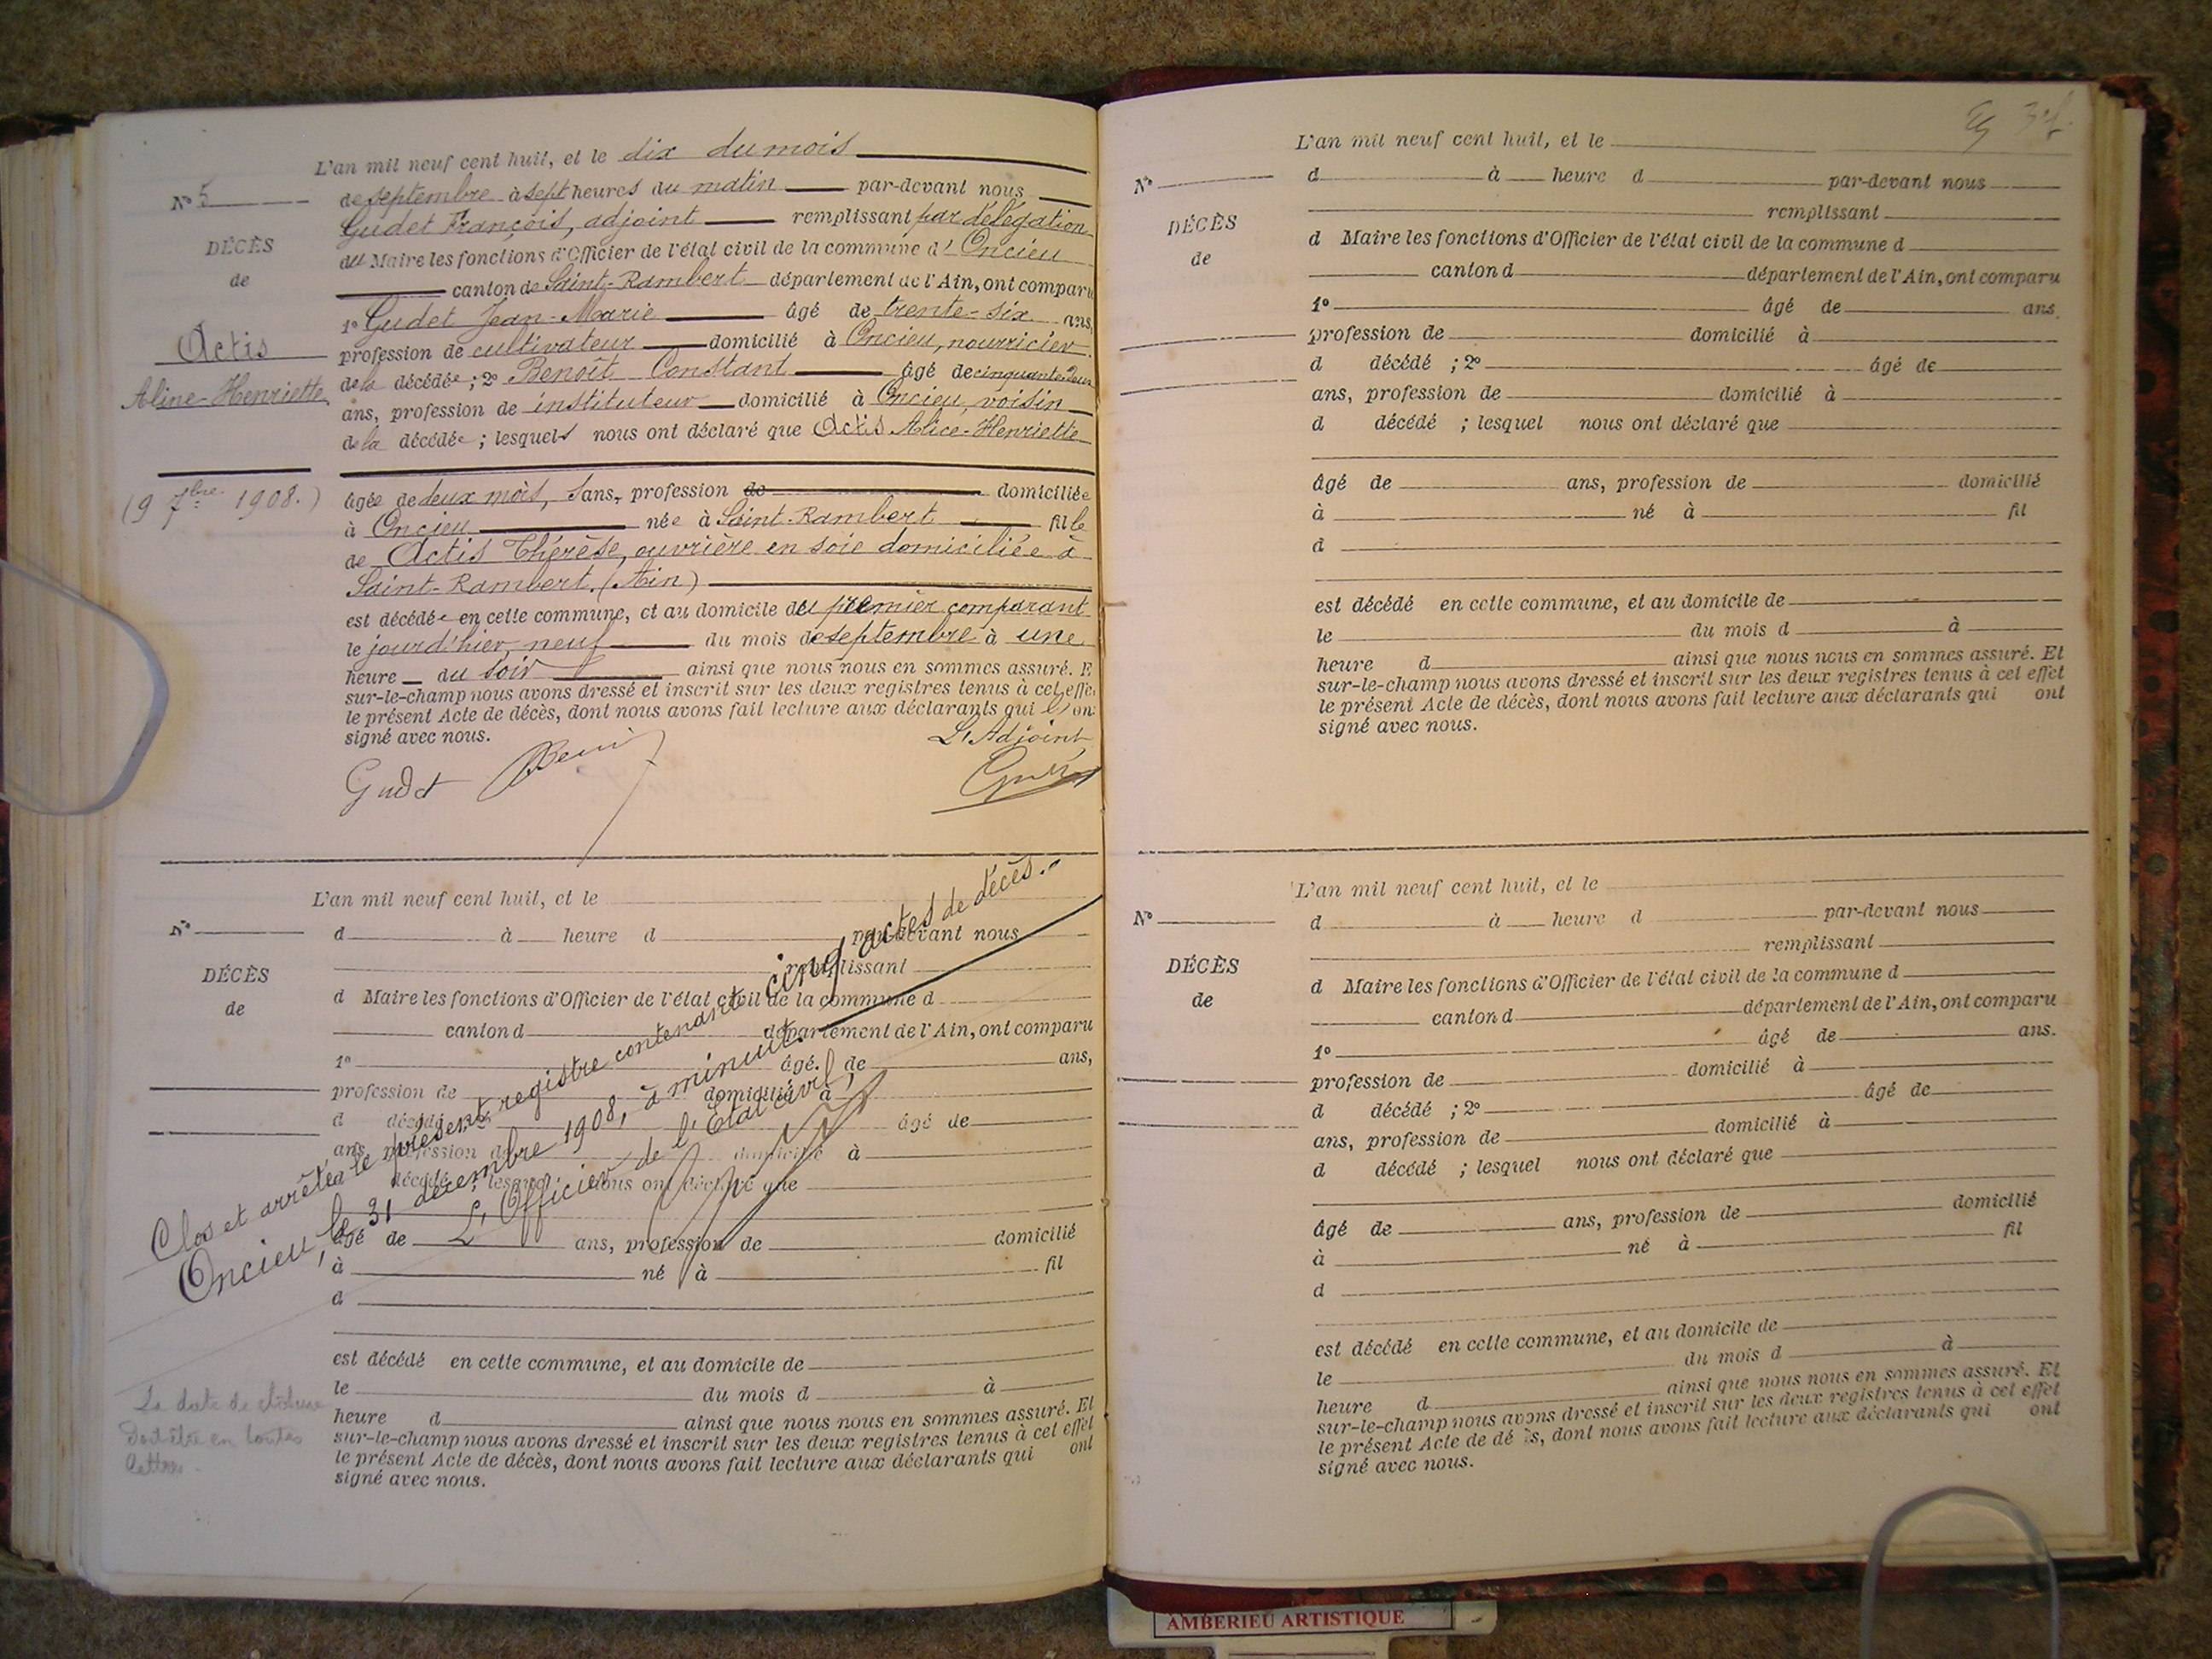 L'an mil neuf cent huit, et le dix du mois
N° 5
de septembre à sept heures du matin par-devant nous
Gudet François, adjoint remplissant par délégation
DÉCÈS
du Maire les fonctions d'Officier de l'état civil de la commune d'Oncieu
de
canton de Saint-Rambert département de l'Ain, ont comparu
1° Gudet Jean-Marie âgé de trente-six ans,
Actis
profession de cultivateur domicilié à Oncieu, nourricier
Aline-Henriette
de la décédée ; 2° Benoît Constant âgé de cinquante deux
ans, profession de instituteur domicilié à Oncieu, voisin
de la décédée ; lesquels nous ont déclaré que Actis Alice-Henriette
(9 7bre 1908.)
âgée de deux mois, sans, profession de domiciliée
à Oncieu née à Saint-Rambert fille
de Actis Thérèse, ouvrière en soie domiciliée à
Saint-Rambert. (Ain)
est décédée en cette commune, et au domicile du premier comparant
le jour d'hier, neuf du mois de septembre à une
heure du soir ainsi que nous nous en sommes assuré. E
sur-le-champ nous avons dressé et inscrit sur les deux registres tenus à cet effe
le présent Acte de décès, dont nous avons fait lecture aux déclarants qui l'on
signé avec nous.
L'Adjoint
Gudet
L'an mil neuf cent huit, et le
N°
d à heure d par-devant nous
remplissant
DÉCÈS
d Maire les fonctions d'Officier de l'état civil de la commune d
de
canton d département de l'Ain, ont comparu
1° âgé de ans,
profession de domicilié à
d décédé ; 2° âgé de
ans, profession de domicilié à
d décédé ; lesquel nous ont déclaré que
âgé de ans, profession de domicilié
à né à fil
d
est décédé en cette commune, et au domicile de
le du mois d à
heure d ainsi que nous nous en sommes assuré. Et
sur-le-champ nous avons dressé et inscrit sur les deux registres tenus à cet effet
le présent Acte de décès, dont nous avons fait lecture aux déclarants qui ont
signé avec nous.
Clos et arrêté le présent registre contenant cinq actes de décès.
Oncieu, le 31 décembre 1908, à minuit.
L'Officier de l'État civil,
La date de clôture
doit être en toutes
lettres.
L'an mil neuf cent huit, et le
N°
d à heure d par-devant nous
remplissant
DÉCÈS
d Maire les fonctions d'Officier de l'état civil de la commune d
de
canton d département de l'Ain, ont comparu
1° âgé de ans.
profession de domicilié à
d décédé ; 2° âgé de
ans, profession de domicilié à
d décédé ; lesquel nous ont déclaré que
âgé de ans, profession de domicilié
à né à fil
d
est décédé en cette commune, et au domicile de
le du mois d à
heure d ainsi que nous nous en sommes assuré. Et
sur-le-champ nous avons dressé et inscrit sur les deux registres tenus à cet effet
le présent Acte de décès, dont nous avons fait lecture aux déclarants qui ont
signé avec nous.
L'an mil neuf cent huit, et le
N°
d à heure d par-devant nous
remplissant
DÉCÈS
d Maire les fonctions d'Officier de l'état civil de la commune d
de
canton d département de l'Ain, ont comparu
1° âgé de ans.
profession de domicilié à
d décédé ; 2° âgé de
ans, profession de domicilié à
d décédé ; lesquel nous ont déclaré que
âgé de ans, profession de domicilié
à né à fil
d
est décédé en cette commune, et au domicile de
le du mois d à
heure d ainsi que nous nous en sommes assuré. Et
sur-le-champ nous avons dressé et inscrit sur les deux registres tenus à cet effet
le présent Acte de décès, dont nous avons fait lecture aux déclarants qui ont
signé avec nous.
AMBERIEU ARTISTIQUE